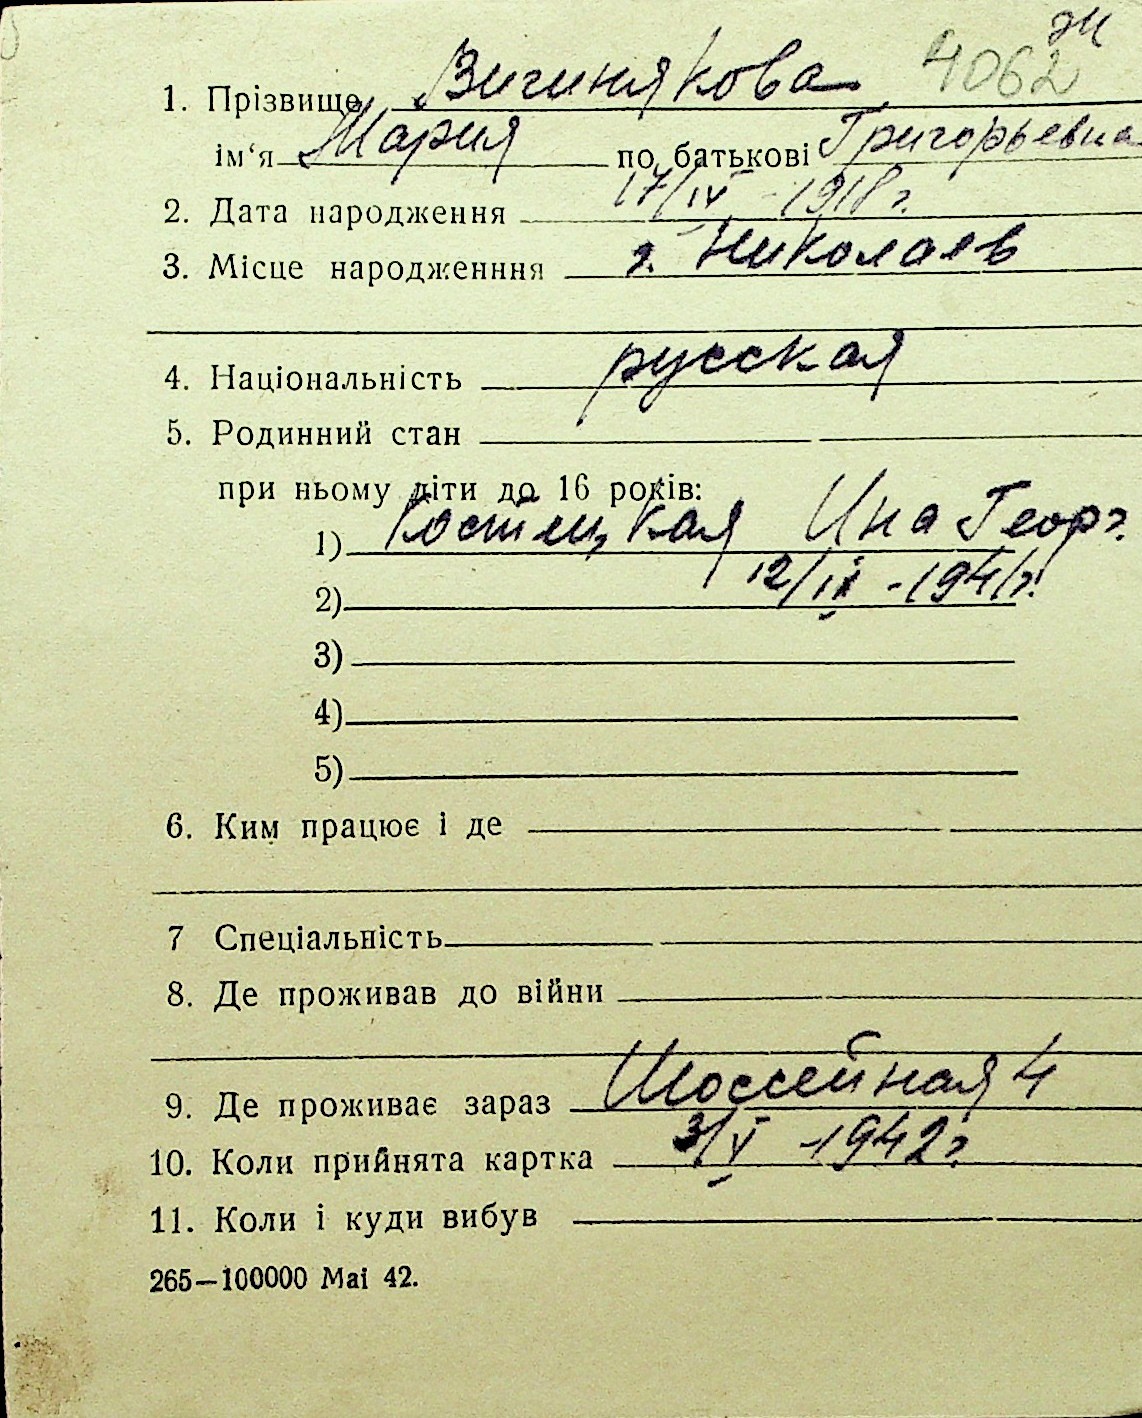 ж
4062
1. Прізвище Вигинякова
ім'я Мария по батькові Григорьевна
2. Дата народження 17/IV - 1918 г.
3. Місце народженння г. Николаев
4. Національність русская
5. Родинний стан
при ньому діти до 16 років:
1) Костецкая Ина Георг.
2) 12/IX - 1941 г.
3)
4)
5)
6. Ким працює і де
7 Спеціальність
8. Де проживав до війни
9. Де проживає зараз Шоссейная 4
10. Коли прийнята картка 3/V - 1942 г.
11. Коли і куди вибув
265—100000 Mai 42.